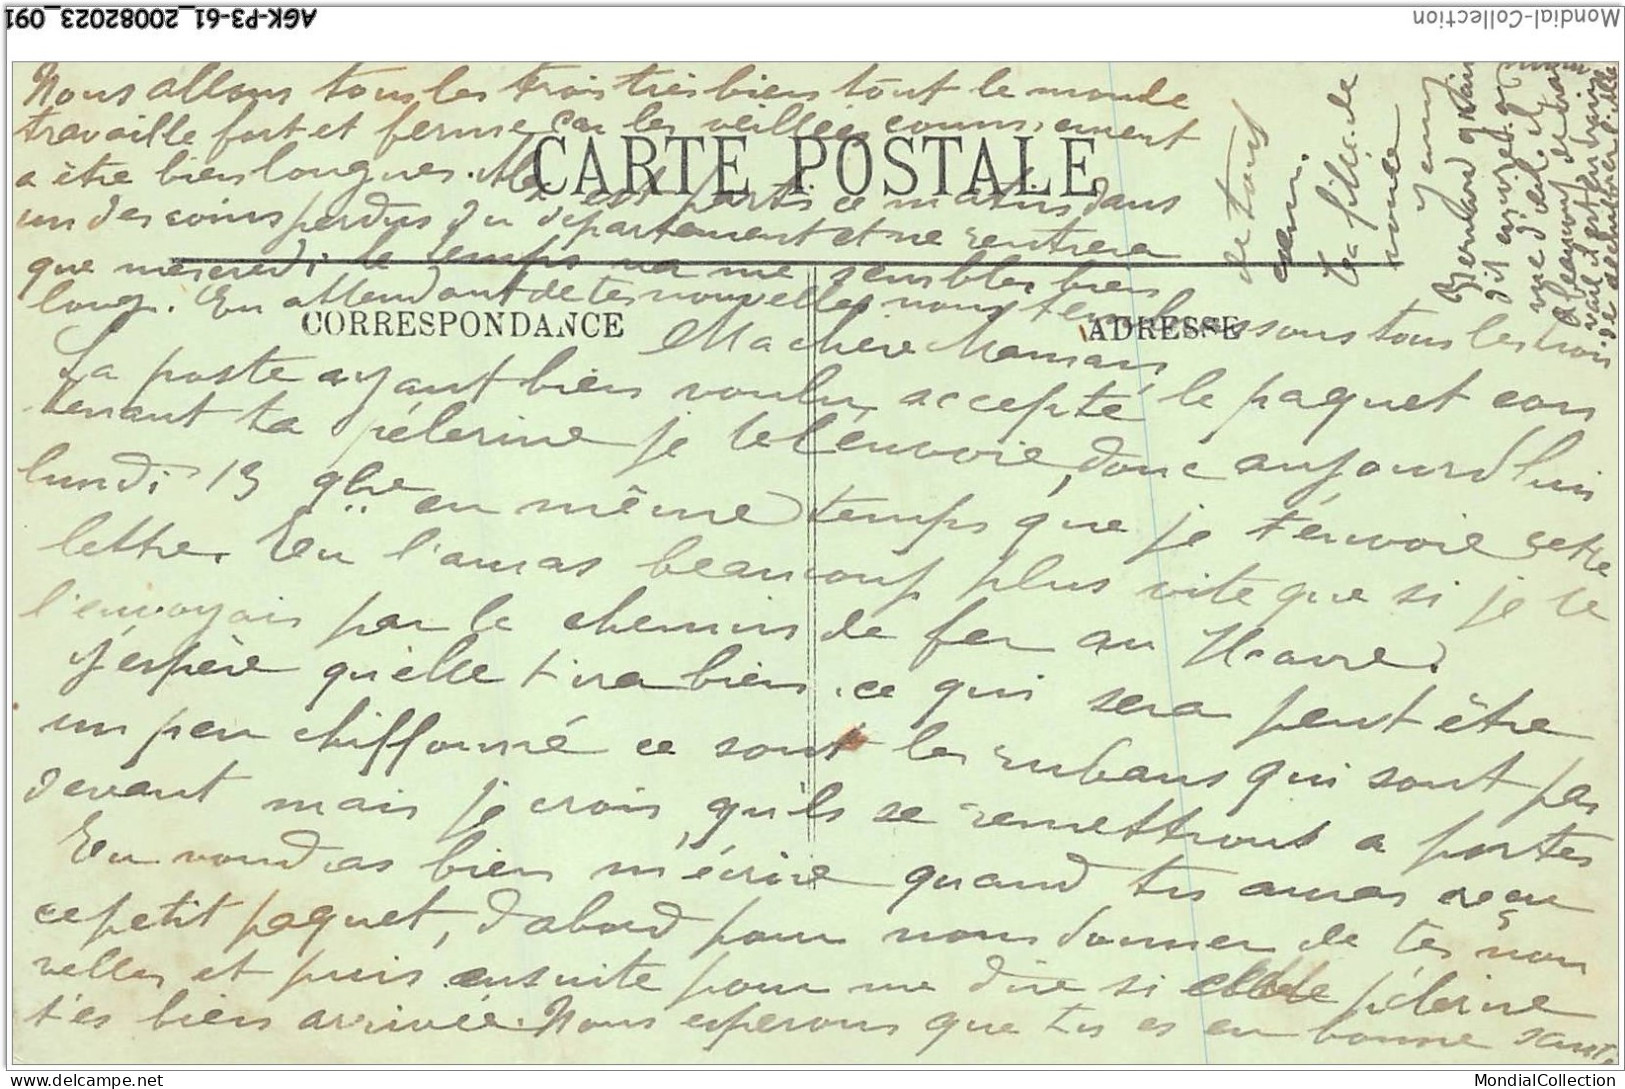 AGK-P3-61_20082023_091
Mondial-Collection
CARTE POSTALE
CORRESPONDANCE
ADRESSE
Ma chère Maman
La poste ayant bien voulu accepté le paquet con
tenant ta pélerine je te l'envoie donc aujourd'hui
lundi 13 9bre en même temps que je t'envoie cette
lettre. Tu l'auras beaucoup plus vite que si je te
l'envoyais par le chemin de fer au Havre.
J'espère qu'elle t'ira bien. ce qui sera peut être
un peu chiffonné ce sont les rubans qui sont par
devant mais je crois qu'ils se remettront a portes
Tu voudras bien m'écrire quand tu auras reçu
ce petit paquet, d'abord pour nous donner de tes nou
velles et puis ensuite pour me dire si pélerine
t'es bien arrivée. Nous esperons que tu es en bonne santé
Nous allons tous les trois très bien tout le monde
travaille fort et ferme car les veillées commencent
a être bien longues. est parti ce matin dans
un des coins perdus du département et ne rentrera
que mercredi le temps va me sembler bien
long. En attendant de tes nouvelles nous t'embrassons tous les trois
de tout
cœur.
ta fille
Bernard
dit
vue d'œil. il
a beaucoup de tra
vail